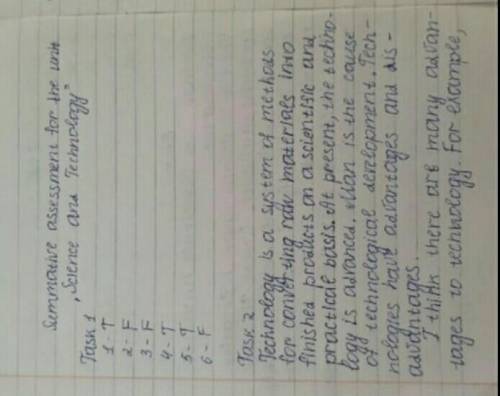 Summative assessment for the unit
„Science and Technology"
Task 1
1 - T
2 - F
3 - F
4 - T
5 - T
6 - F
Task 2
Technology is a system of methods
for converting raw materials into
finished products on a scientific and
practical basis. At present, the techno-
logy is advanced. Man is the cause
of technological development. Tech-
nologies have advantages and dis-
advantages.
I think there are many advan-
tages to technology. For example,